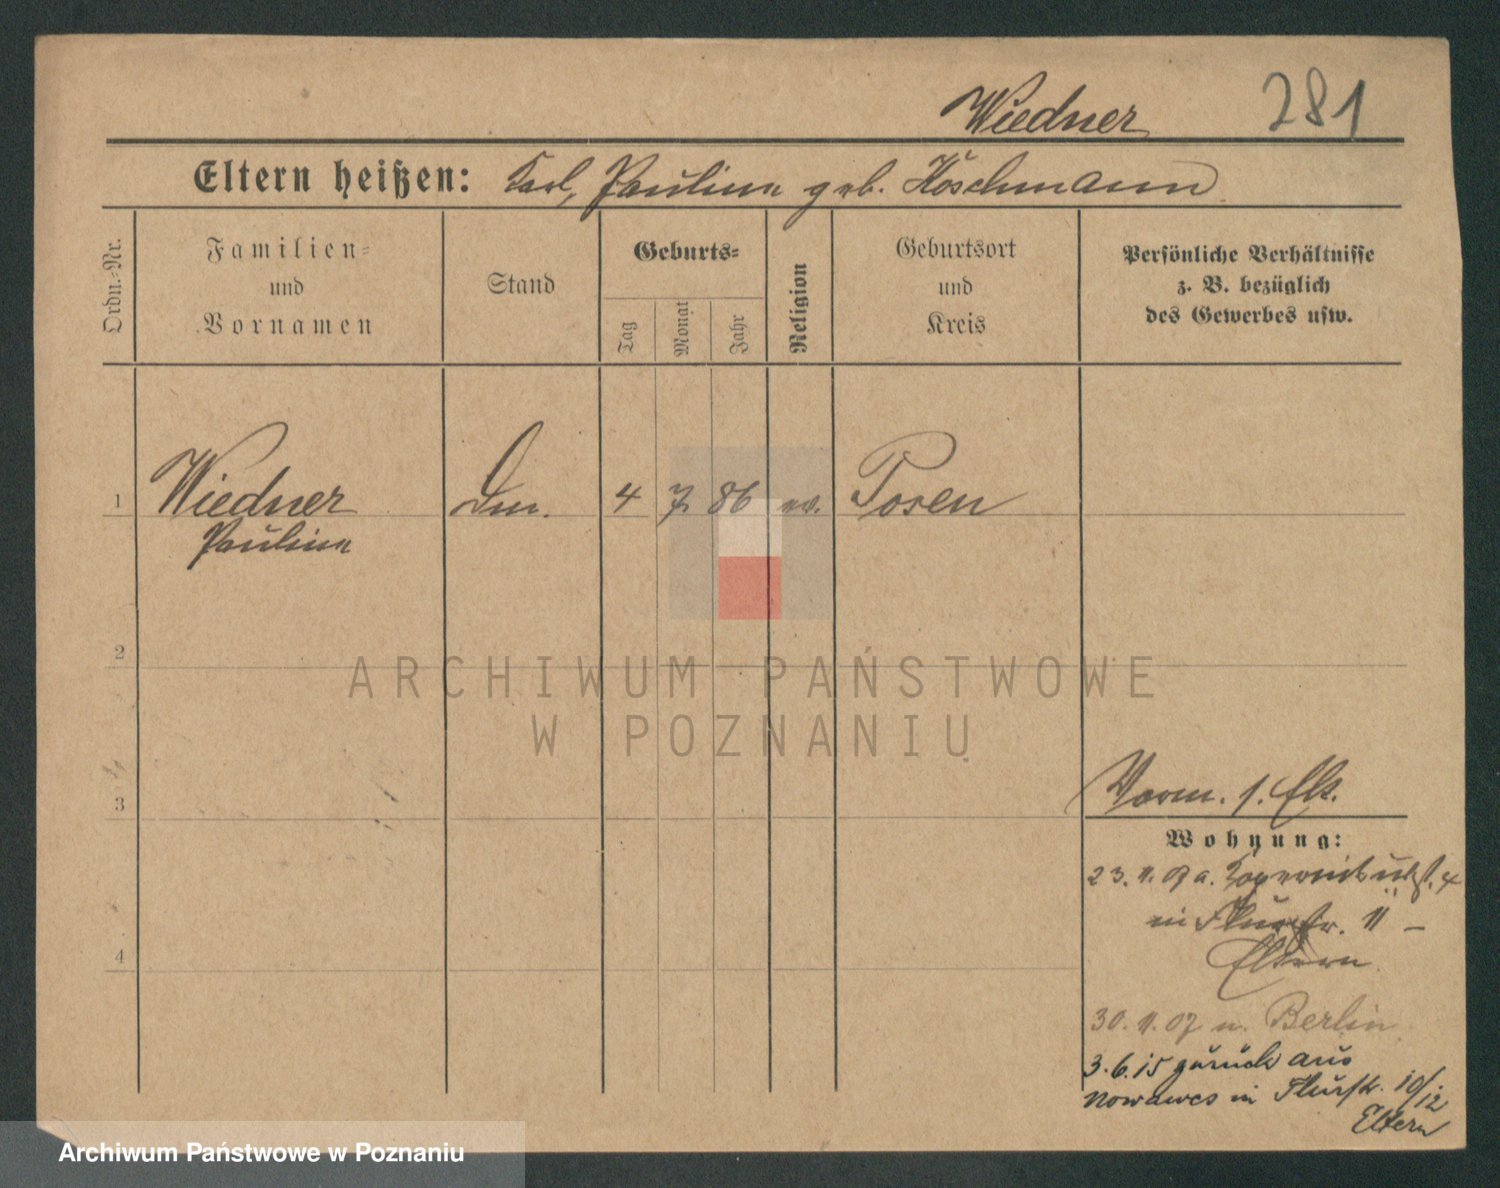 Wiedner 281
Eltern heißen: Karl, Pauline geb. Köschmann
Ordn.-Nr.
Familien- und Vornamen
Stand
Geburts-
Tag
Monat
Jahr
Religion
Geburtsort und Kreis
Persönliche Verhältnisse z. B. bezüglich des Gewerbes usw.
1 Wiedner 4 7. 86 ev. Posen
Pauline
2
ARCHIWUM PAŃSTWOWE
W POZNANIU
3
Vorm. 1. Elt.
Wohnung:
23. 11. 07 a. 4
in Flurstr. 11 –
Eltern
4
30. 11. 07 n. Berlin
3. 6. 15 zurück aus
Nowawes in Flurstr. 10/12
Eltern
Archiwum Państwowe w Poznaniu